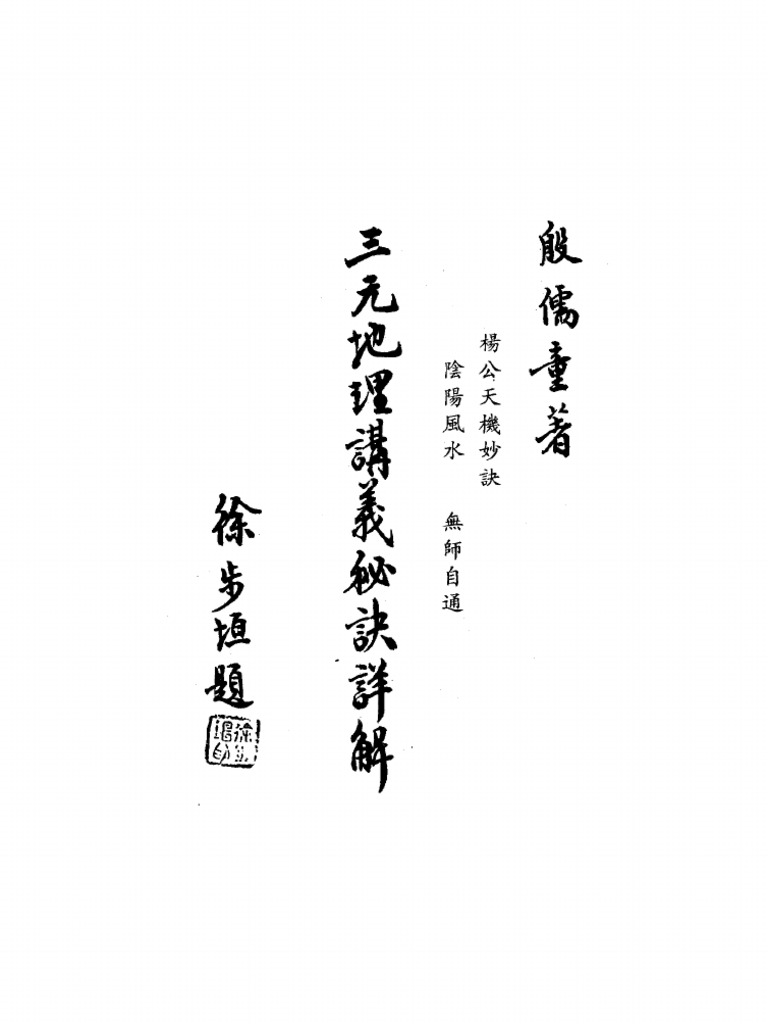 殷儒童著
楊公天機妙訣
陰陽風水 無師自通
三元地理講義秘訣詳解
徐步垣題